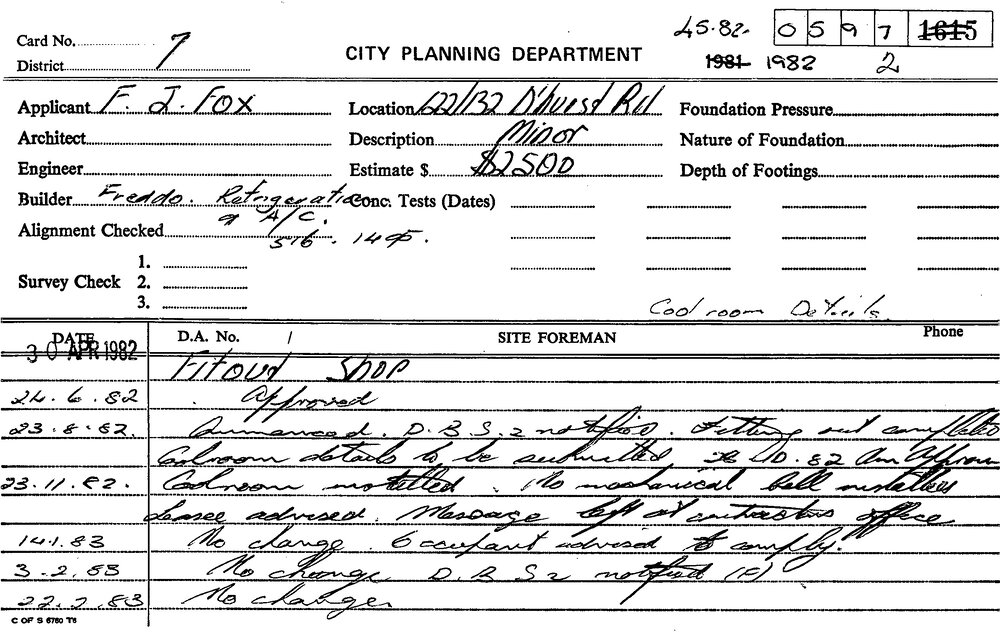 45.82. 0 5 9 7 1615
Card No. 7
CITY PLANNING DEPARTMENT
District
1981 1982 2
Applicant F. J. Fox Location 122/132 D'hurst Rd Foundation Pressure
Architect Description Minor Nature of Foundation
Engineer Estimate $ $2500 Depth of Footings
Builder Freddo. Refrigeration Conc. Tests (Dates)
& A/C.
Alignment Checked 516.1405.
1.
Survey Check 2.
3.
Coolroom Details.
DATE D.A. No. / SITE FOREMAN Phone
30 APR 1982
Fitout Shop
24.6.82 Approved
23.8.82. D.B.S.2 notified. Fitting out completed
Coolroom details to be submitted .82
23.11.82. Coolroom installed. No mechanical bell installed
Lessee advised. Message left at contractors office
14.1.83 No change. Occupant advised to comply.
3.2.83 No change D.B.S2 notified (F)
22.2.83 No change.
C OF S 6760 T6